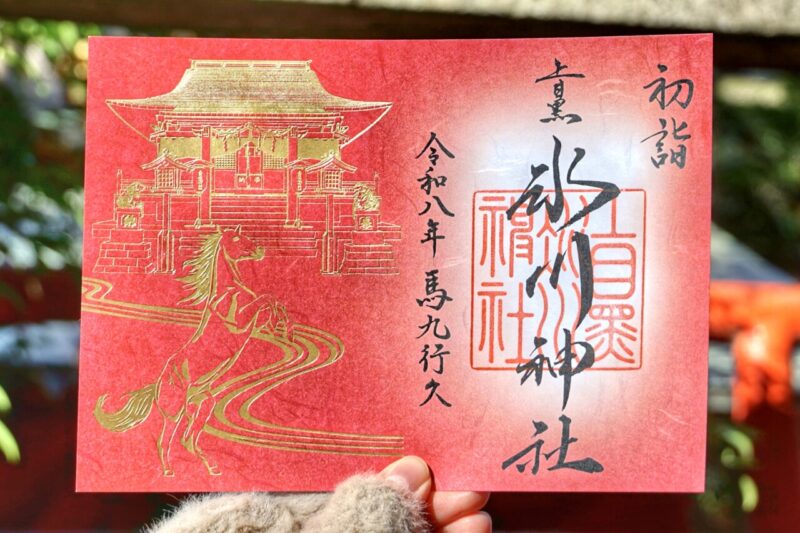 初詣
上目黒
氷川神社
令和八年 馬九行久
上目黒
氷川
神社